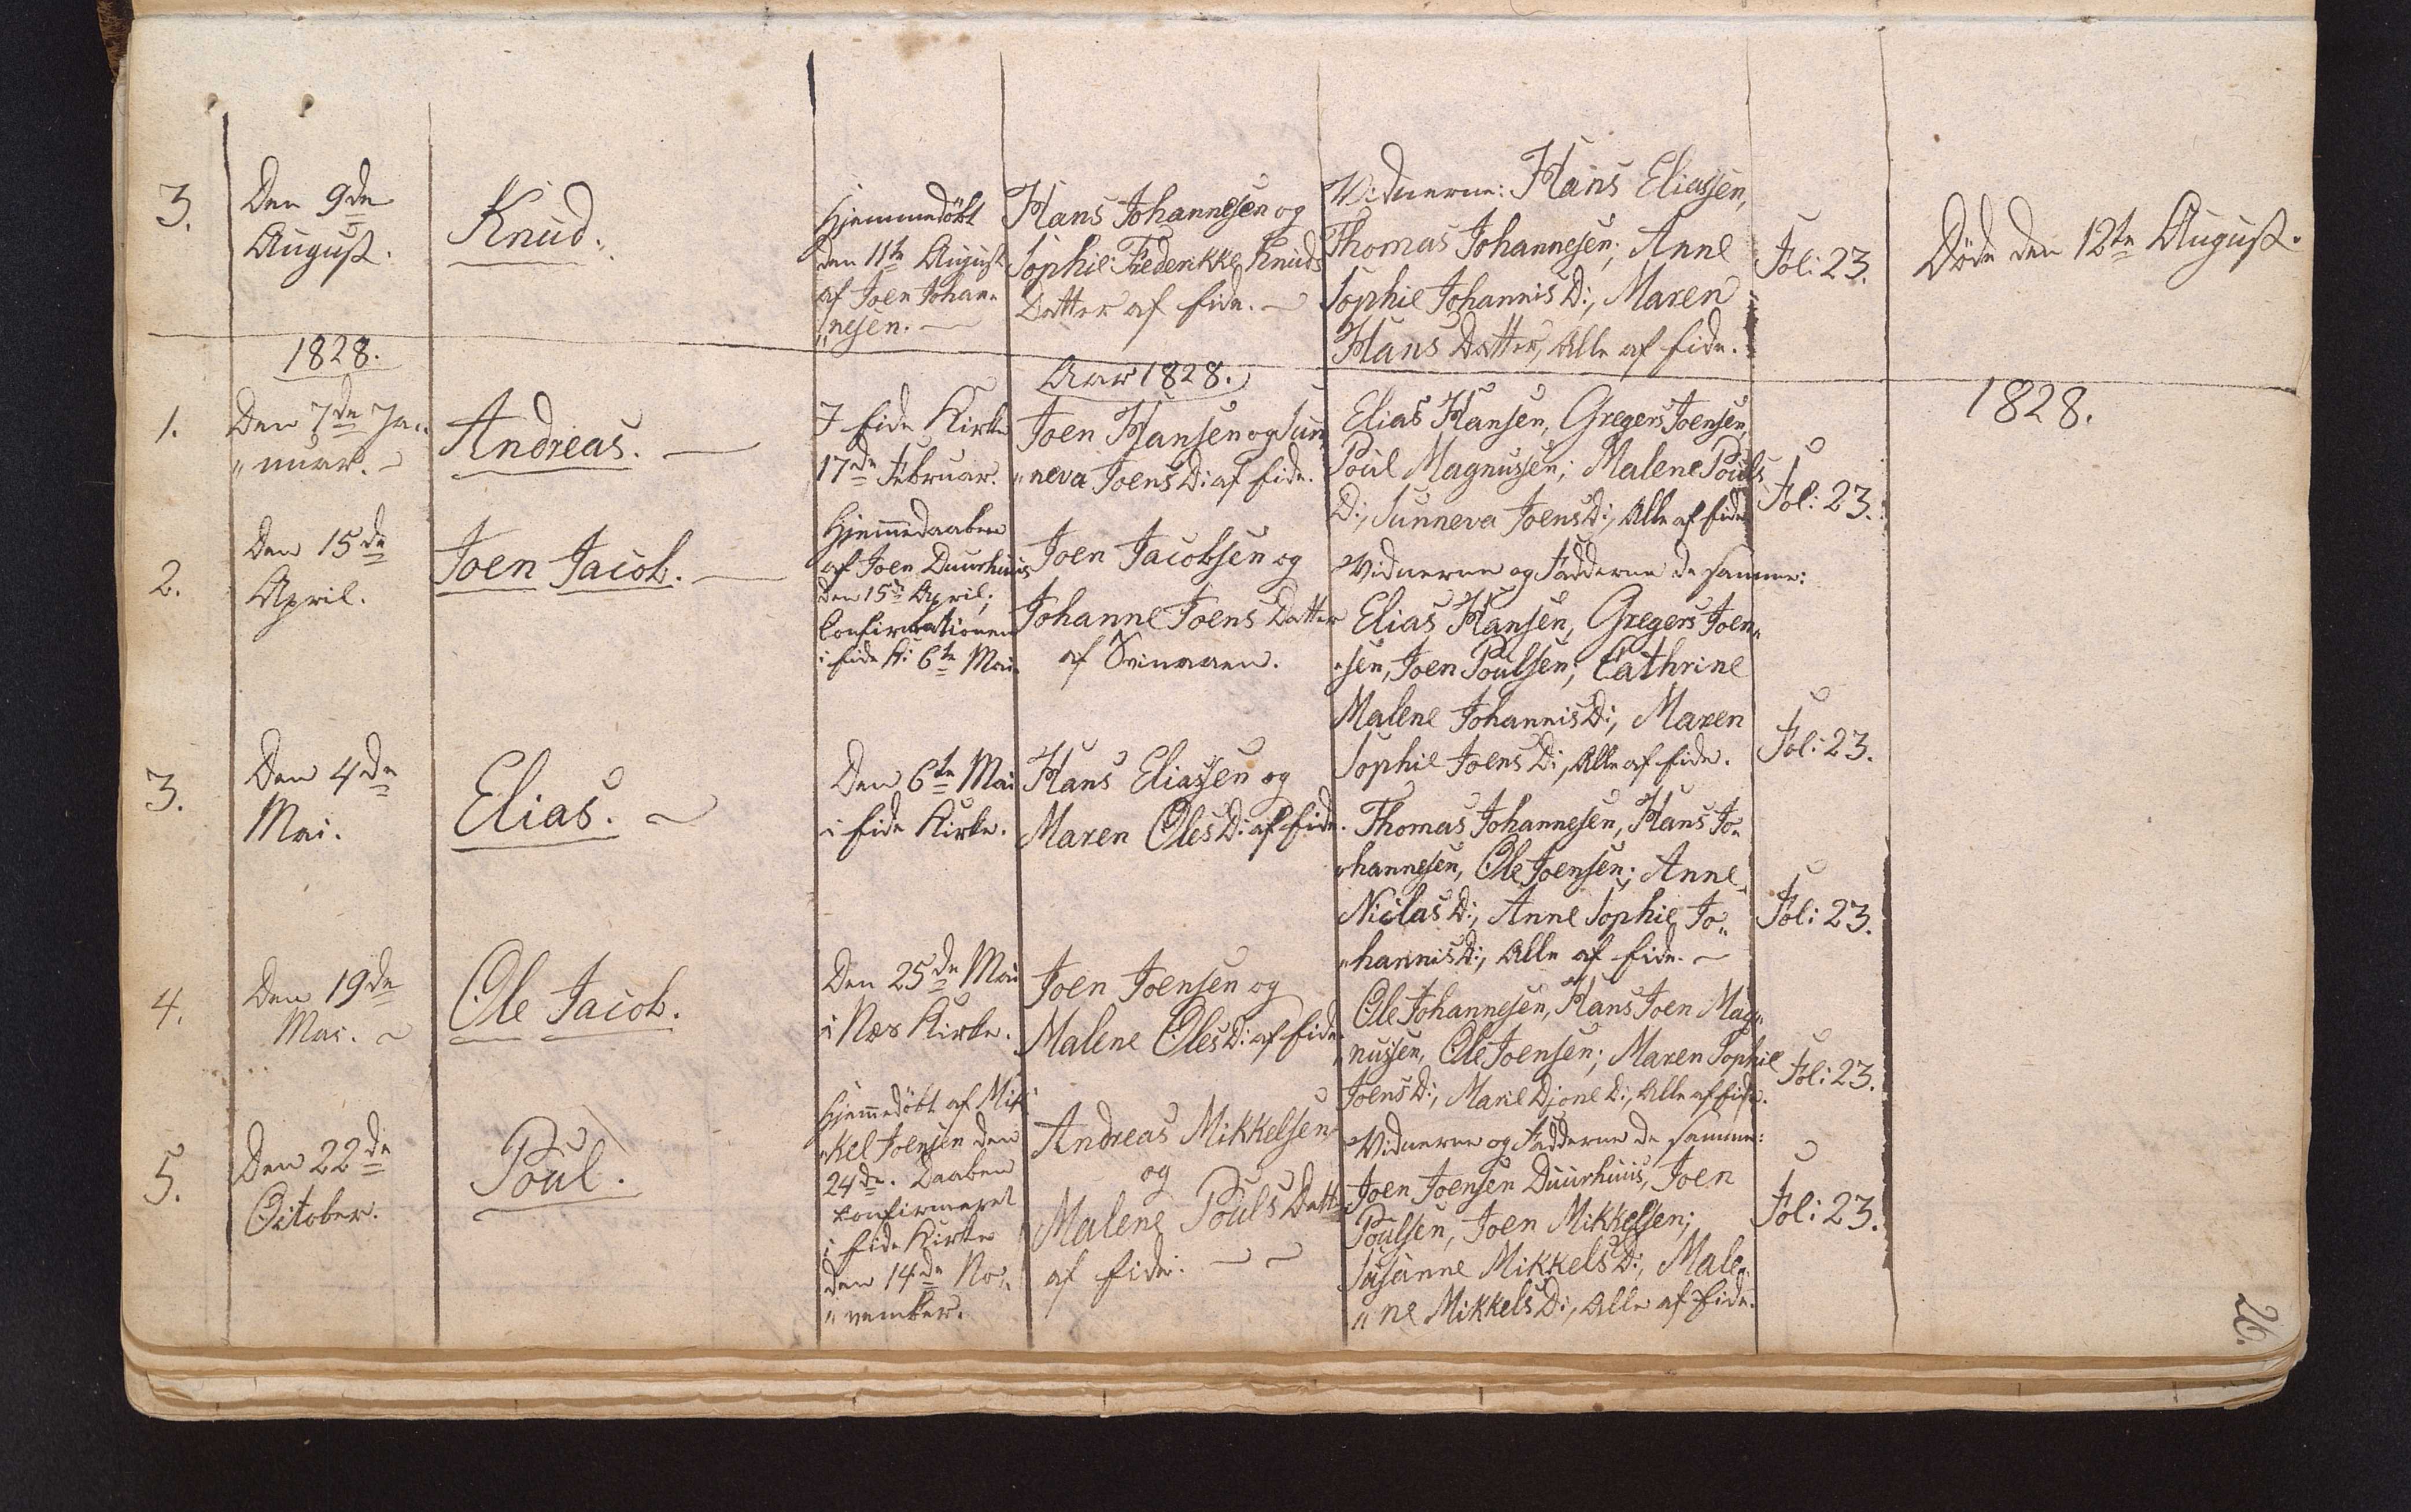 3.
Den 9de
August.
Knud.
Hjemmedöbt
den 11te August
af Joen Johan„
„nesen.
Hans Johannesen og
Sophie Frederikke Knuds
Datter af Eide.
Vidnerne: Hans Eliassen,
Thomas Johannesen; Anne
Sophie Johannis D:, Maren
Hans Datter, Alle af Eide.
Fol: 23.
Döde den 12te August.
1828.
Aar 1828.
1828.
1.
Den 7de Ja„
„nuar.
Andreas.
I Eide Kirke
17de Februar.
Joen Hansen og Sun„
„neva Joens D: af Eide.
Elias Hansen, Gregers Joensen,
Poul Magnussen; Malene Pouls
D:, Sunneva Joens D:, Alle af Eide
Fol: 23.
2.
Den 15de
April.
Joen Jacob.
Hjemmedaaben
af Joen Duurhuus
den 15de April;
Confirmationen
i Eide K: 6te Mai
Joen Jacobsen og
Johanne Joens Datter
af Svinaaen.
Vidnerne og Fadderne de samme:
Elias Hansen, Gregers Joen„
„sen, Joen Poulsen; Cathrine
Malene Johannis D:, Maren
Sophie Joens D:, Alle af Eide.
Fol: 23.
3.
Den 4de
Mai.
Elias.
Den 6te Mai
i Eide Kirke.
Hans Eliassen og
Maren Oles D: af Eide.
Thomas Johannesen, Hans Jo„
„hannesen, Ole Joensen; Anne
Niclas D:, Anne Sophie Jo„
„hannis D:, Alle af Eide.
Fol: 23.
4.
Den 19de
Mai.
Ole Jacob.
Den 25de Mai
i Næs Kirke.
Joen Joensen og
Malene Oles D: af Eide
Ole Johannesen, Hans Joen Mag„
„nussen, Ole Joensen; Maren Sophie
Joens D:, Marie Djone D:, Alle af Eide.
Fol: 23.
5.
Den 22de
October.
Poul.
Hjemmedöbt af Mik
„kel Joensen den
24de. Daaben
confirmeret
i Eide Kirke
den 14de No„
„vember.
Andreas Mikkelsen
og
Malene Pouls Datt:
af Eide.
Vidnerne og Fadderne de samme:
Joen Joensen Duurhuus, Joen
Poulsen, Joen Mikkelsen;
Susanne Mikkels D:, Male„
„ne Mikkels D:, Alle af Eide.
Fol: 23.
26.